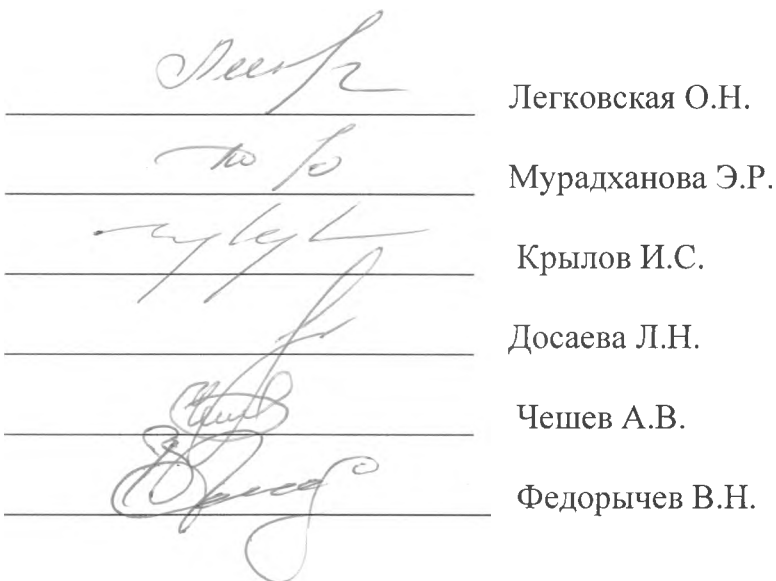 Легковская О.Н.
Мурадханова Э.Р.
Крылов И.С.
Досаева Л.Н.
Чешев А.В.
Федорычев В.Н.